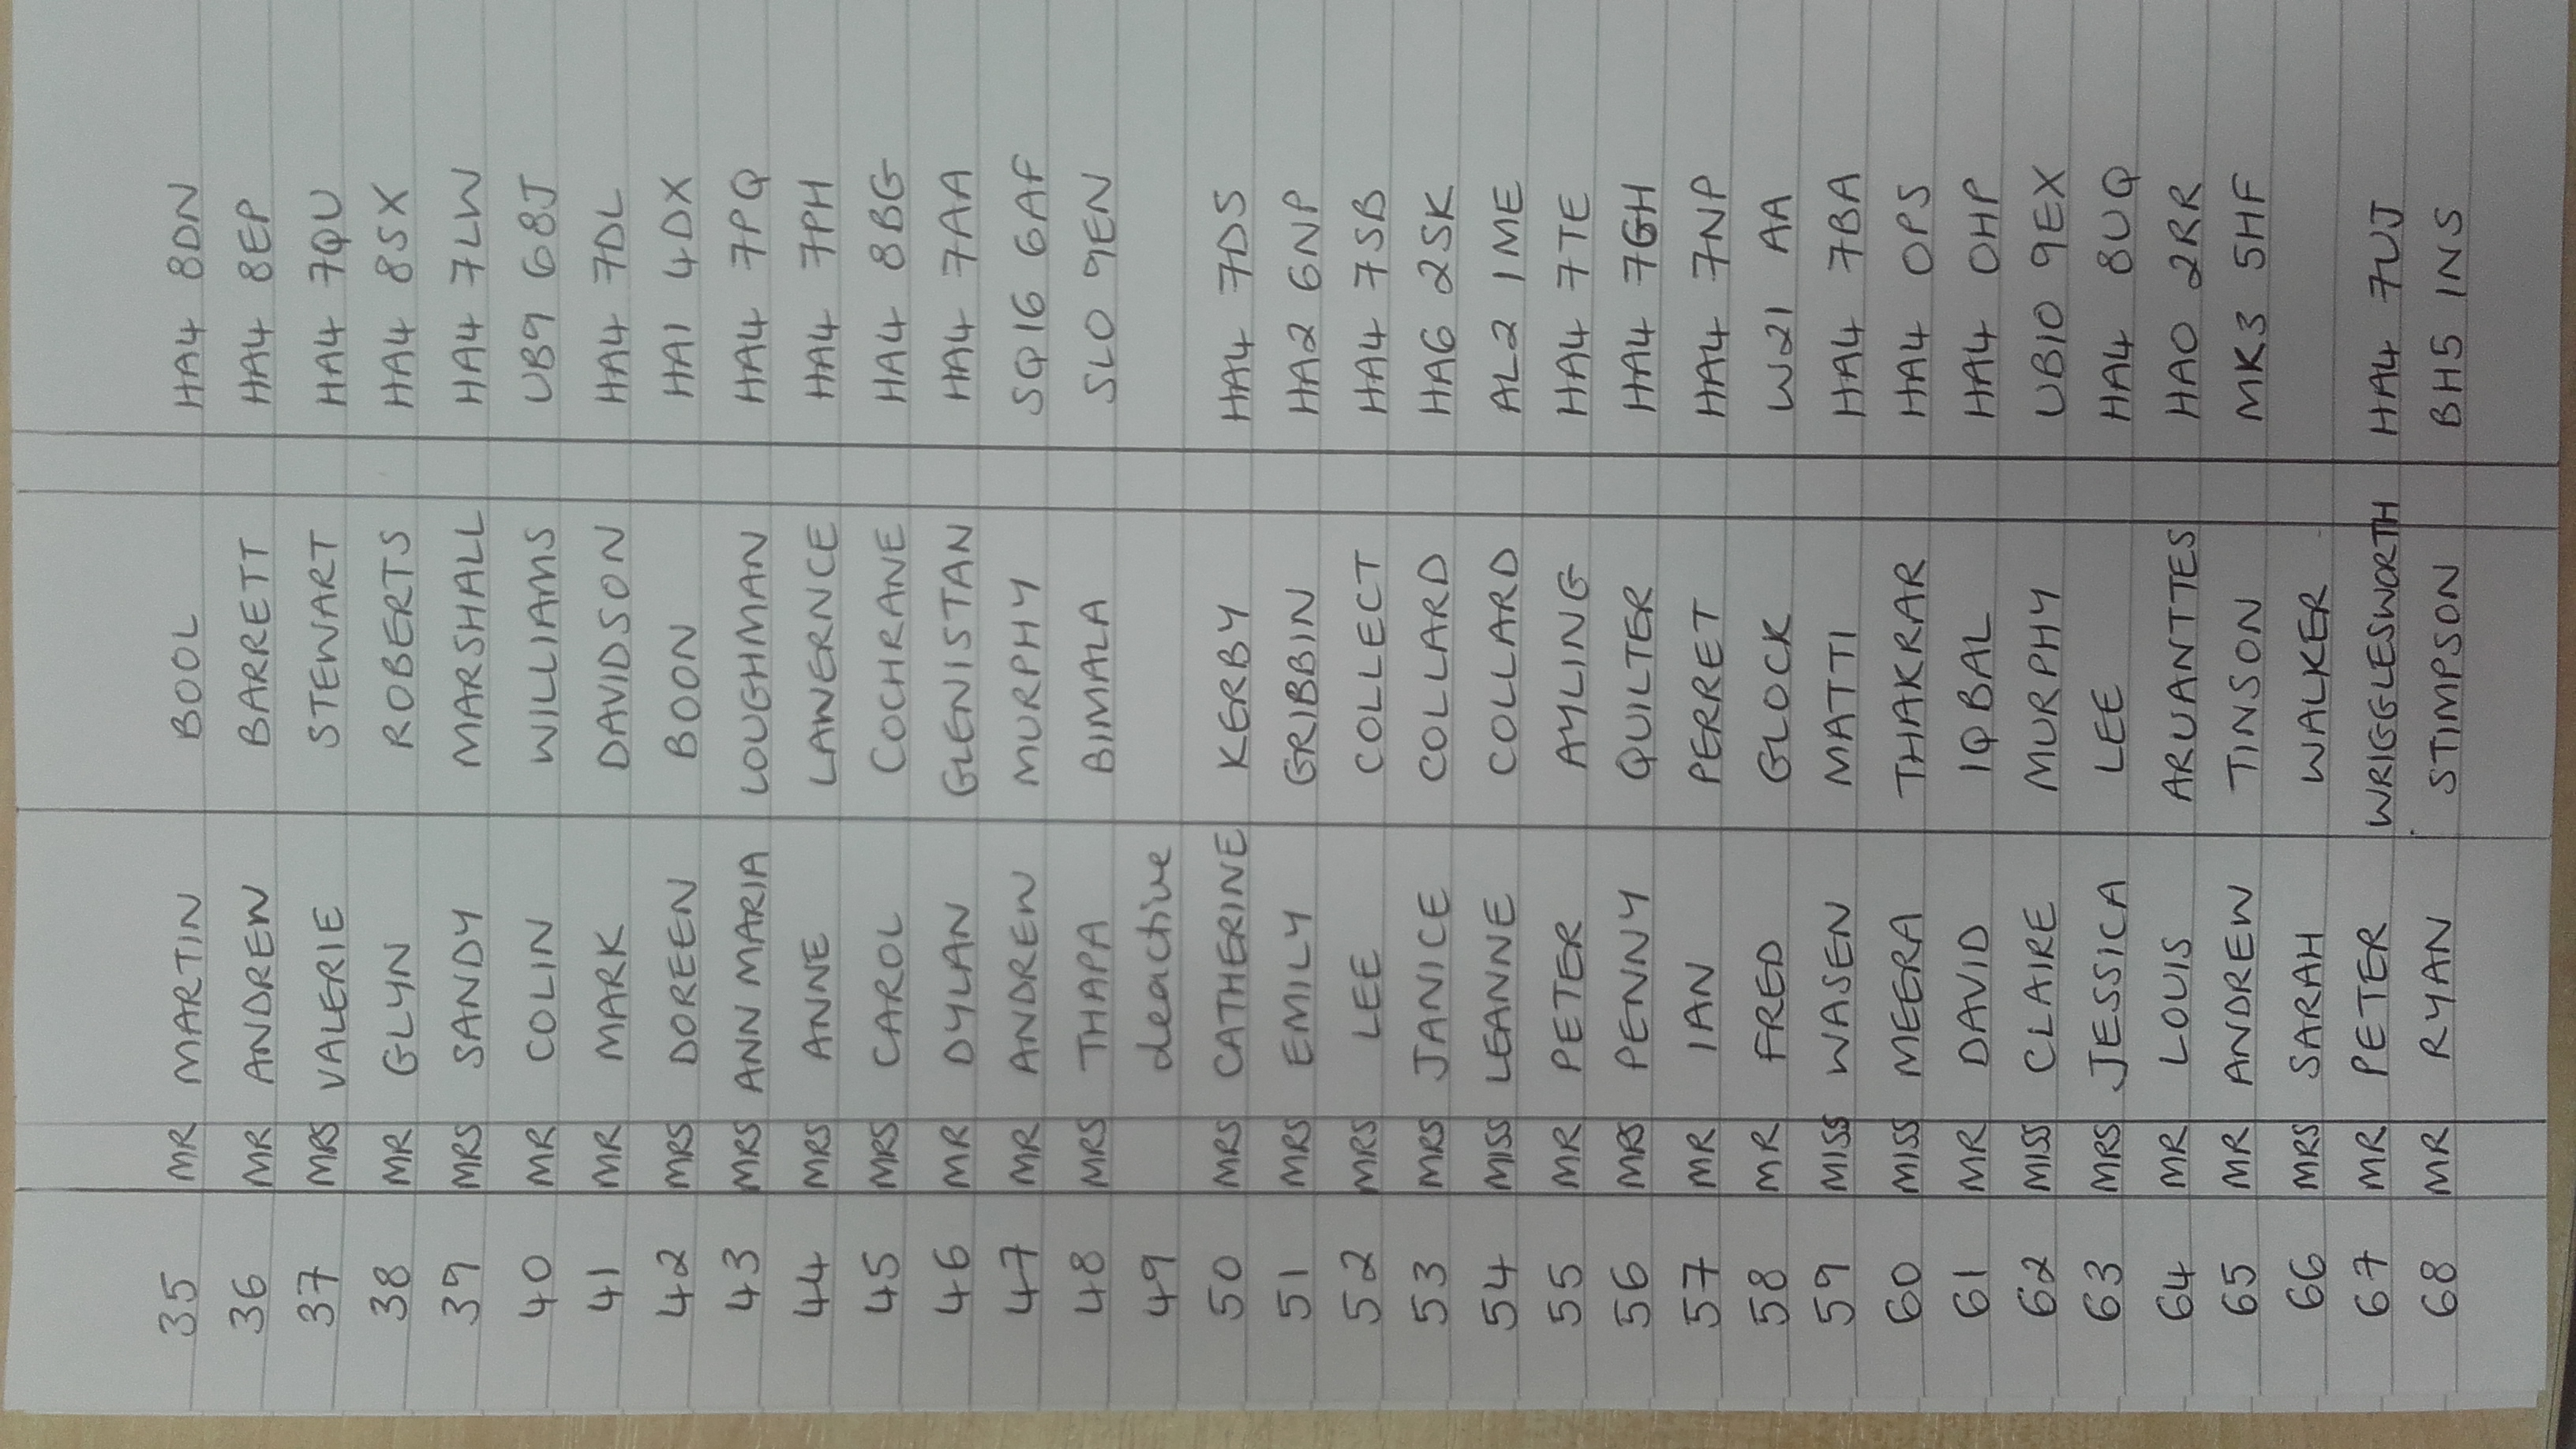 35 MR MARTIN BOOL HA4 8DN
36 MR ANDREW BARRETT HA4 8EP
37 MRS VALERIE STEWART HA4 7QU
38 MR GLYN ROBERTS HA4 8SX
39 MRS SANDY MARSHALL HA4 7LW
40 MR COLIN WILLIAMS UB9 68J
41 MR MARK DAVIDSON HA4 7DL
42 MRS DOREEN BOON HA1 4DX
43 MRS ANN MARIA LOUGHMAN HA4 7PQ
44 MRS ANNE LAWERNCE HA4 7PH
45 MRS CAROL COCHRANE HA4 8BG
46 MR DYLAN GLENISTAN HA4 7AA
47 MR ANDREW MURPHY SQ16 6AF
48 MRS THAPA BIMALA SL0 9EN
49 deactive
50 MRS CATHERINE KERBY HA4 7DS
51 MRS EMILY GRIBBIN HA2 6NP
52 MRS LEE COLLECT HA4 7SB
53 MRS JANICE COLLARD HA6 2SK
54 MISS LEANNE COLLARD AL2 1ME
55 MR PETER AYLING HA4 7TE
56 MRS PENNY QUILTER HA4 7GH
57 MR IAN PERRET HA4 7NP
58 MR FRED GLOCK W21 AA
59 MISS WASEN MATTI HA4 7BA
60 MISS MEERA THAKRAR HA4 0PS
61 MR DAVID IQBAL HA4 0HP
62 MISS CLAIRE MURPHY UB10 9EX
63 MRS JESSICA LEE HA4 8UQ
64 MR LOUIS ARUANTTES HA0 2RR
65 MR ANDREW TINSON MK3 5HF
66 MRS SARAH WALKER
67 MR PETER WRIGGLESWORTH HA4 7UJ
68 MR RYAN STIMPSON BH5 1NS